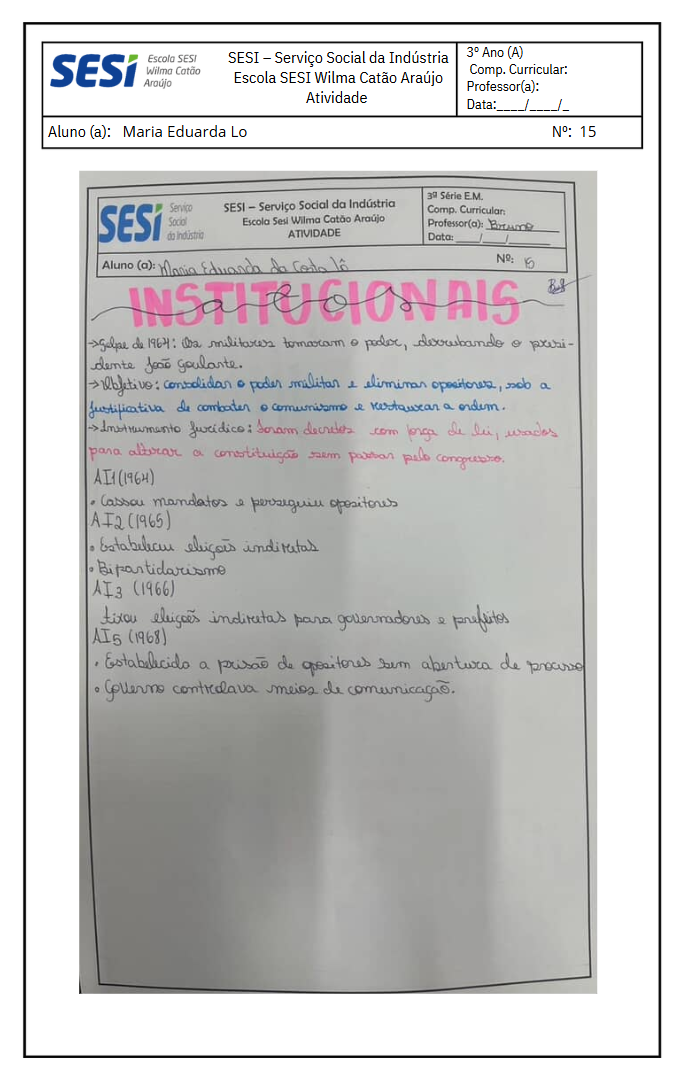 SESI
Escola SESI
Wilma Catão
Araújo
SESI – Serviço Social da Indústria
Escola SESI Wilma Catão Araújo
Atividade
3º Ano (A)
Comp. Curricular:
Professor(a):
Data:____/____/_
Aluno (a): Maria Eduarda Lo
Nº: 15
SESI
Serviço
Social
da Indústria
SESI – Serviço Social da Indústria
Escola Sesi Wilma Catão Araújo
ATIVIDADE
3ª Série E.M.
Comp. Curricular:
Professor(a): Bruno
Data: ____/____/____
Aluno (a): Maria Eduarda da Costa Lô
Nº: 15
atos
INSTITUCIONAIS
→Golpe de 1964: Os militares tomaram o poder, derrubando o presi-
dente João Goularte.
→Objetivo: consolidar o poder militar e eliminar opositores, sob a
justificativa de combater o comunismo e restaurar a ordem.
→Instrumento Jurídico: Foram decretos com força de lei, usados
para alterar a constituição sem passar pelo congresso.
AI1 (1964)
• Cassou mandatos e perseguiu opositores
AI2 (1965)
• Estabeleceu eleições indiretas
• Bipartidarismo
AI3 (1966)
fixou eleições indiretas para governadores e prefeitos
AI5 (1968)
• Estabelecido a prisão de opositores sem abertura de processo
• Governo controlava meios de comunicação.